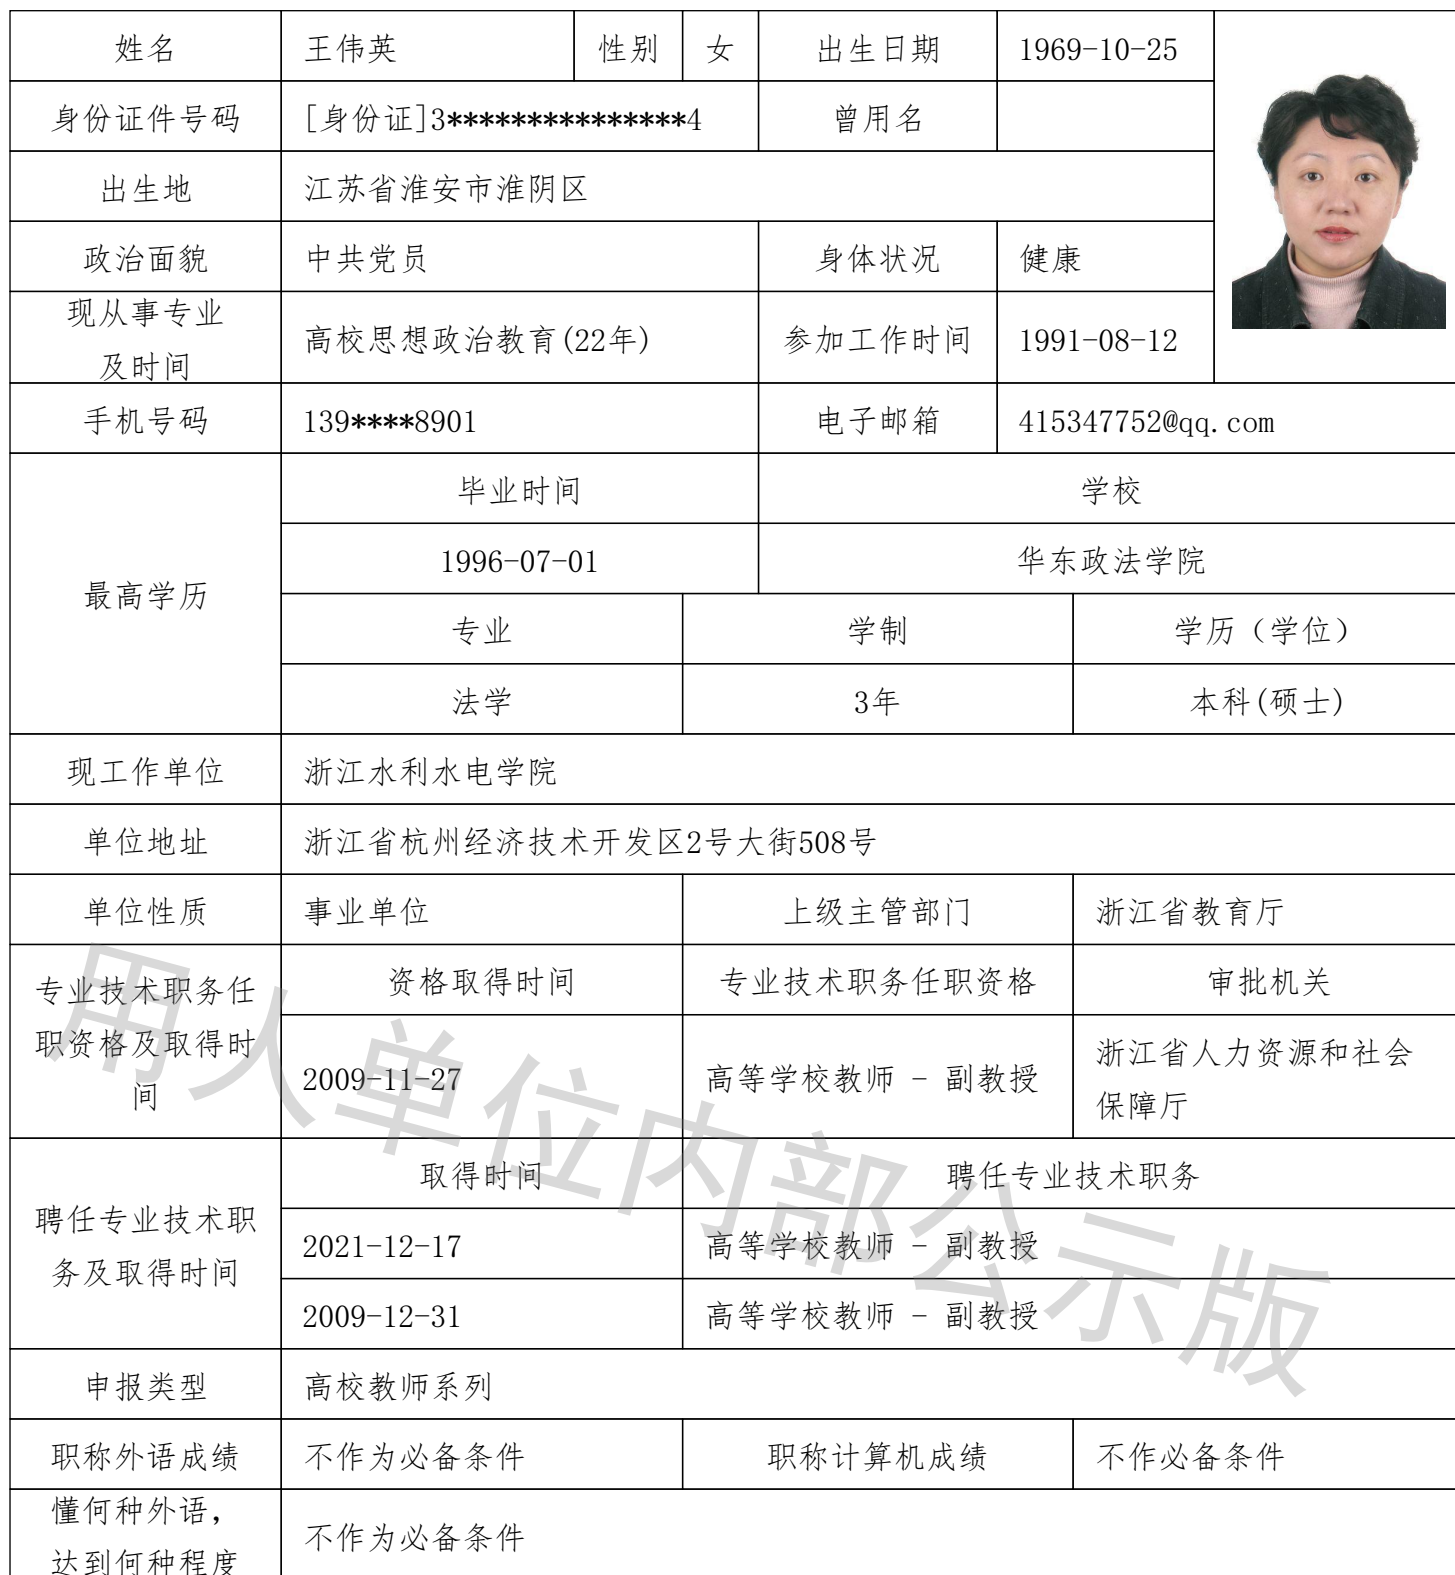 姓名 王伟英 性别 女 出生日期 1969-10-25
身份证件号码 [身份证]3***************4 曾用名
出生地 江苏省淮安市淮阴区
政治面貌 中共党员 身体状况 健康
现从事专业
及时间
高校思想政治教育(22年) 参加工作时间 1991-08-12
手机号码 139****8901 电子邮箱 415347752@qq.com
最高学历
毕业时间 学校
1996-07-01 华东政法学院
专业 学制 学历（学位）
法学 3年 本科(硕士)
现工作单位 浙江水利水电学院
单位地址 浙江省杭州经济技术开发区2号大街508号
单位性质 事业单位 上级主管部门 浙江省教育厅
专业技术职务任
职资格及取得时
间
资格取得时间 专业技术职务任职资格 审批机关
2009-11-27 高等学校教师 - 副教授 浙江省人力资源和社会
保障厅
聘任专业技术职
务及取得时间
取得时间 聘任专业技术职务
2021-12-17 高等学校教师 - 副教授
2009-12-31 高等学校教师 - 副教授
申报类型 高校教师系列
职称外语成绩 不作为必备条件 职称计算机成绩 不作必备条件
懂何种外语，
达到何种程度
不作为必备条件
用人单位内部公示版